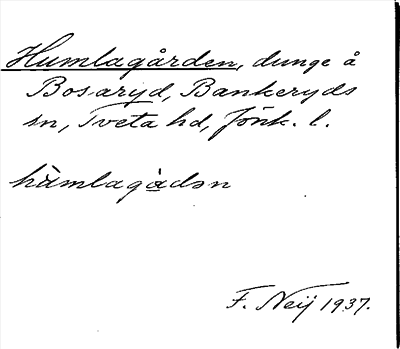 Humlagården, dunge å
Bosaryd, Bankeryds
sn, Tveta hd, Jönk. l.
hùmlagàdən
F. Neij 1937.